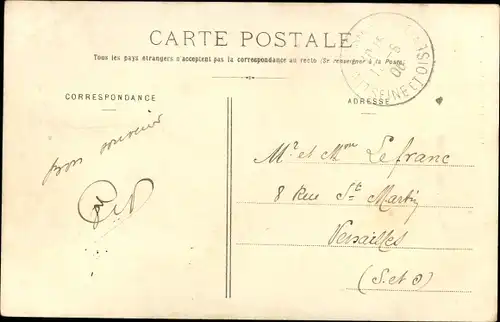 CARTE POSTALE
Tous les pays étrangers n'acceptent pas la correspondance au recto (Se renseigner à la Poste)
CORRESPONDANCE
ADRESSE
Bon souvenir
Mr et Mme Lefranc
8 Rue Ste Martin
Versailles
(S. et O)
SEINE ET OISE
06